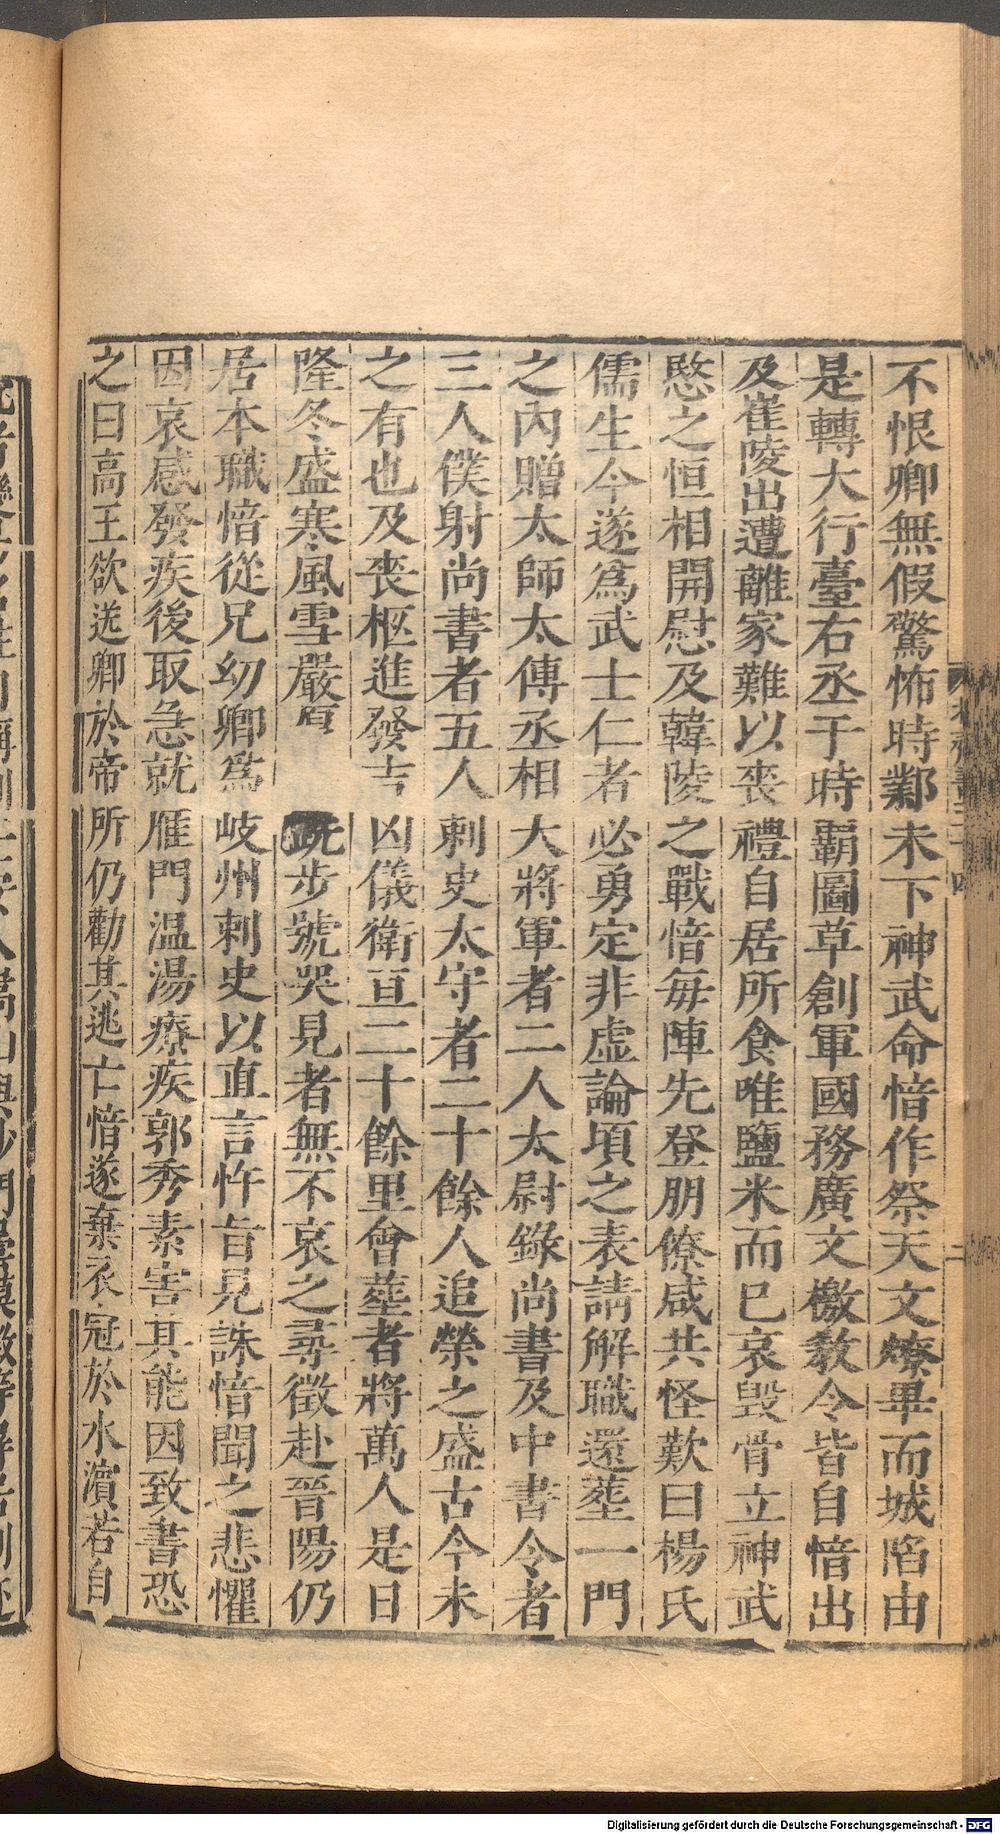 不恨卿無假驚怖時鄴未下神武命愔作祭天文燎畢而城陷由
是轉大行臺右丞于時霸圖草創軍國務廣文檄敎令皆自愔出
及崔㥄出遭離家難以喪禮自居所食唯鹽米而已哀毀骨立神武
愍之恒相開慰及韓陵之戰愔每陣先登朋僚咸共怪歎曰楊氏
儒生今遂爲武士仁者必勇定非虛論頃之表請解職還葬一門
之內贈太師太傅丞相大將軍者二人太尉錄尚書及中書令者
三人僕射尚書者五人刺史太守者二十餘人追榮之盛古今未
之有也及喪柩進發吉凶儀衛亘二十餘里會葬者將萬人是日
隆冬盛寒風雪嚴厚跣步號哭見者無不哀之尋徵赴晉陽仍
居本職愔從兄幼卿爲岐州刺史以直言忤旨見誅愔聞之悲懼
因哀感發疾後取急就雁門温湯療疾郭秀素害其能因致書恐
之曰高王欲送卿於帝所仍勸其逃亡愔遂棄衣冠於水濱若自
Digitalisierung gefördert durch die Deutsche Forschungsgemeinschaft - DFG